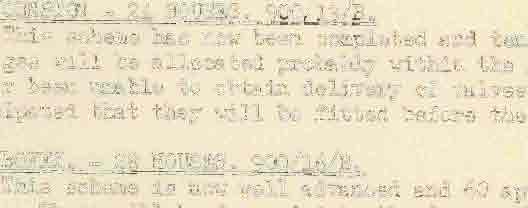 - 24 HOUSES. 900/13/B.
This scheme has now been completed and ten
gas will be allocated probably within the
been unable to obtain delivery of valves
ipated that they will be fitted before the
- 28 HOUSES. 900/14/B.
This scheme is now well advanced and 60 ap